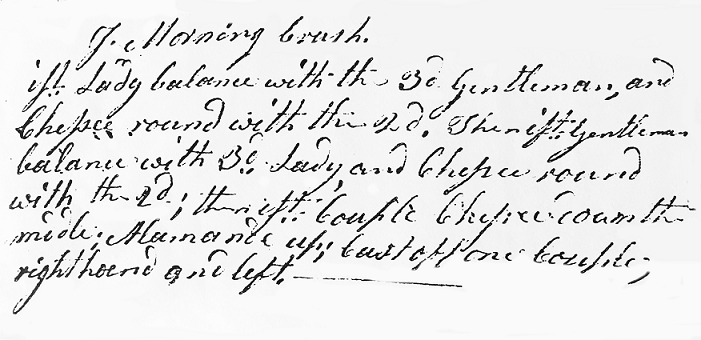 7. Morning brush.
ift. Lady balance with the 3d Gentleman, and
Chessee round with the 2d. Then ift. Gentleman
balance with 3d Lady, and Chessee round
with the 2d; then ift. Couple Chessee down the
midle; Alamande up; Cast off one Couple;
right hand and left.